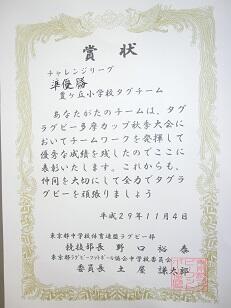 賞状
チャレンジリーグ
準優勝
豊ヶ丘小学校タグチーム
あなたがたのチームは、タグ
ラグビー多摩カップ秋季大会に
おいてチームワークを発揮して
優秀な成績を残したのでここに
表彰いたします。これからも、
仲間を大切にして全力でタグラ
グビーを頑張りましょう
平成29年11月4日
東京都中学校体育連盟ラグビー部
競技部長 野口裕泰
東京都ラグビーフットボール協会中学校委員会
委員長 土屋謙太郎